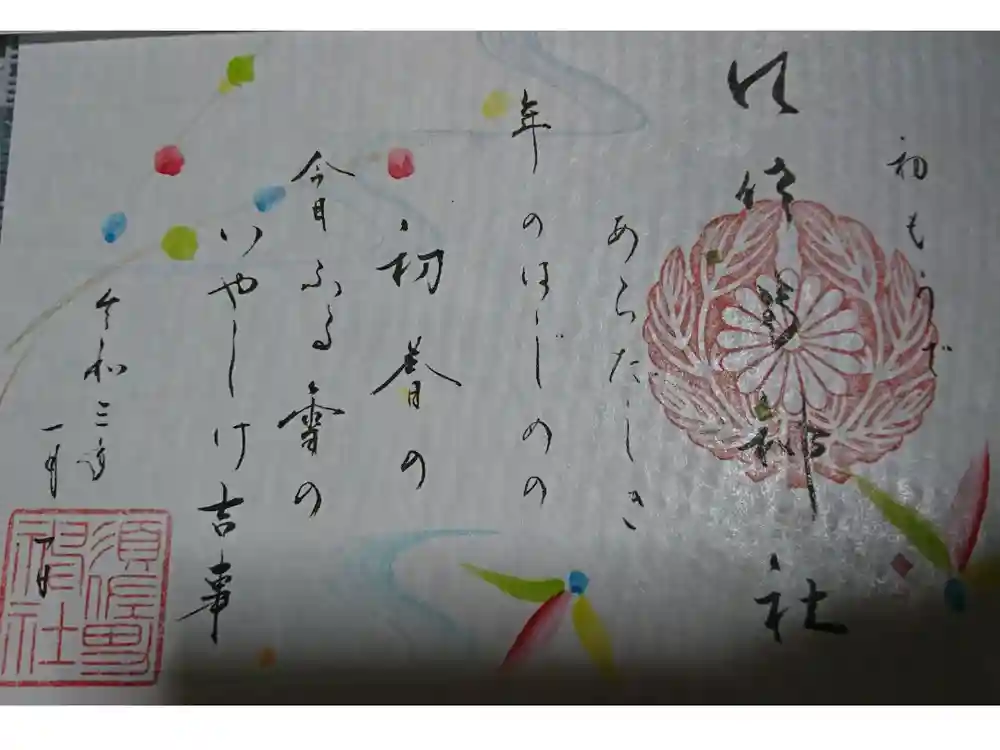 初もうで
須佐男神社
あらたしき
年のはじめの
初春の
今日ふる雪の
いやしけ吉事
令和三年
一月一日
須佐男
神社